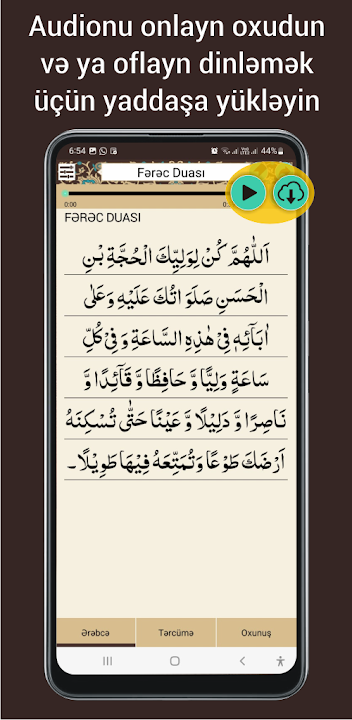 Audionu onlayn oxudun
və ya oflayn dinləmək
üçün yaddaşa yükləyin
6:54 44%
Fərəc Duası
0:00
FƏRƏC DUASI
اَللّٰهُمَّ كُنْ لِوَلِيِّكَ الْحُجَّةِ بْنِ
الْحَسَنِ صَلَوَاتُكَ عَلَيْهِ وَعَلٰى
اٰبَآئِهٖ فِيْ هٰذِهِ السَّاعَةِ وَ فِيْ كُلِّ
سَاعَةٍ وَلِيًّا وَّ حَافِظًا وَّ قَآئِدًا وَّ
نَاصِرًا وَّ دَلِيْلًا وَّ عَيْنًا حَتّٰى تُسْكِنَهُ
اَرْضَكَ طَوْعًا وَتُمَتِّعَهُ فِيْهَا طَوِيْلًا۔
Ərəbcə Tərcümə Oxunuş